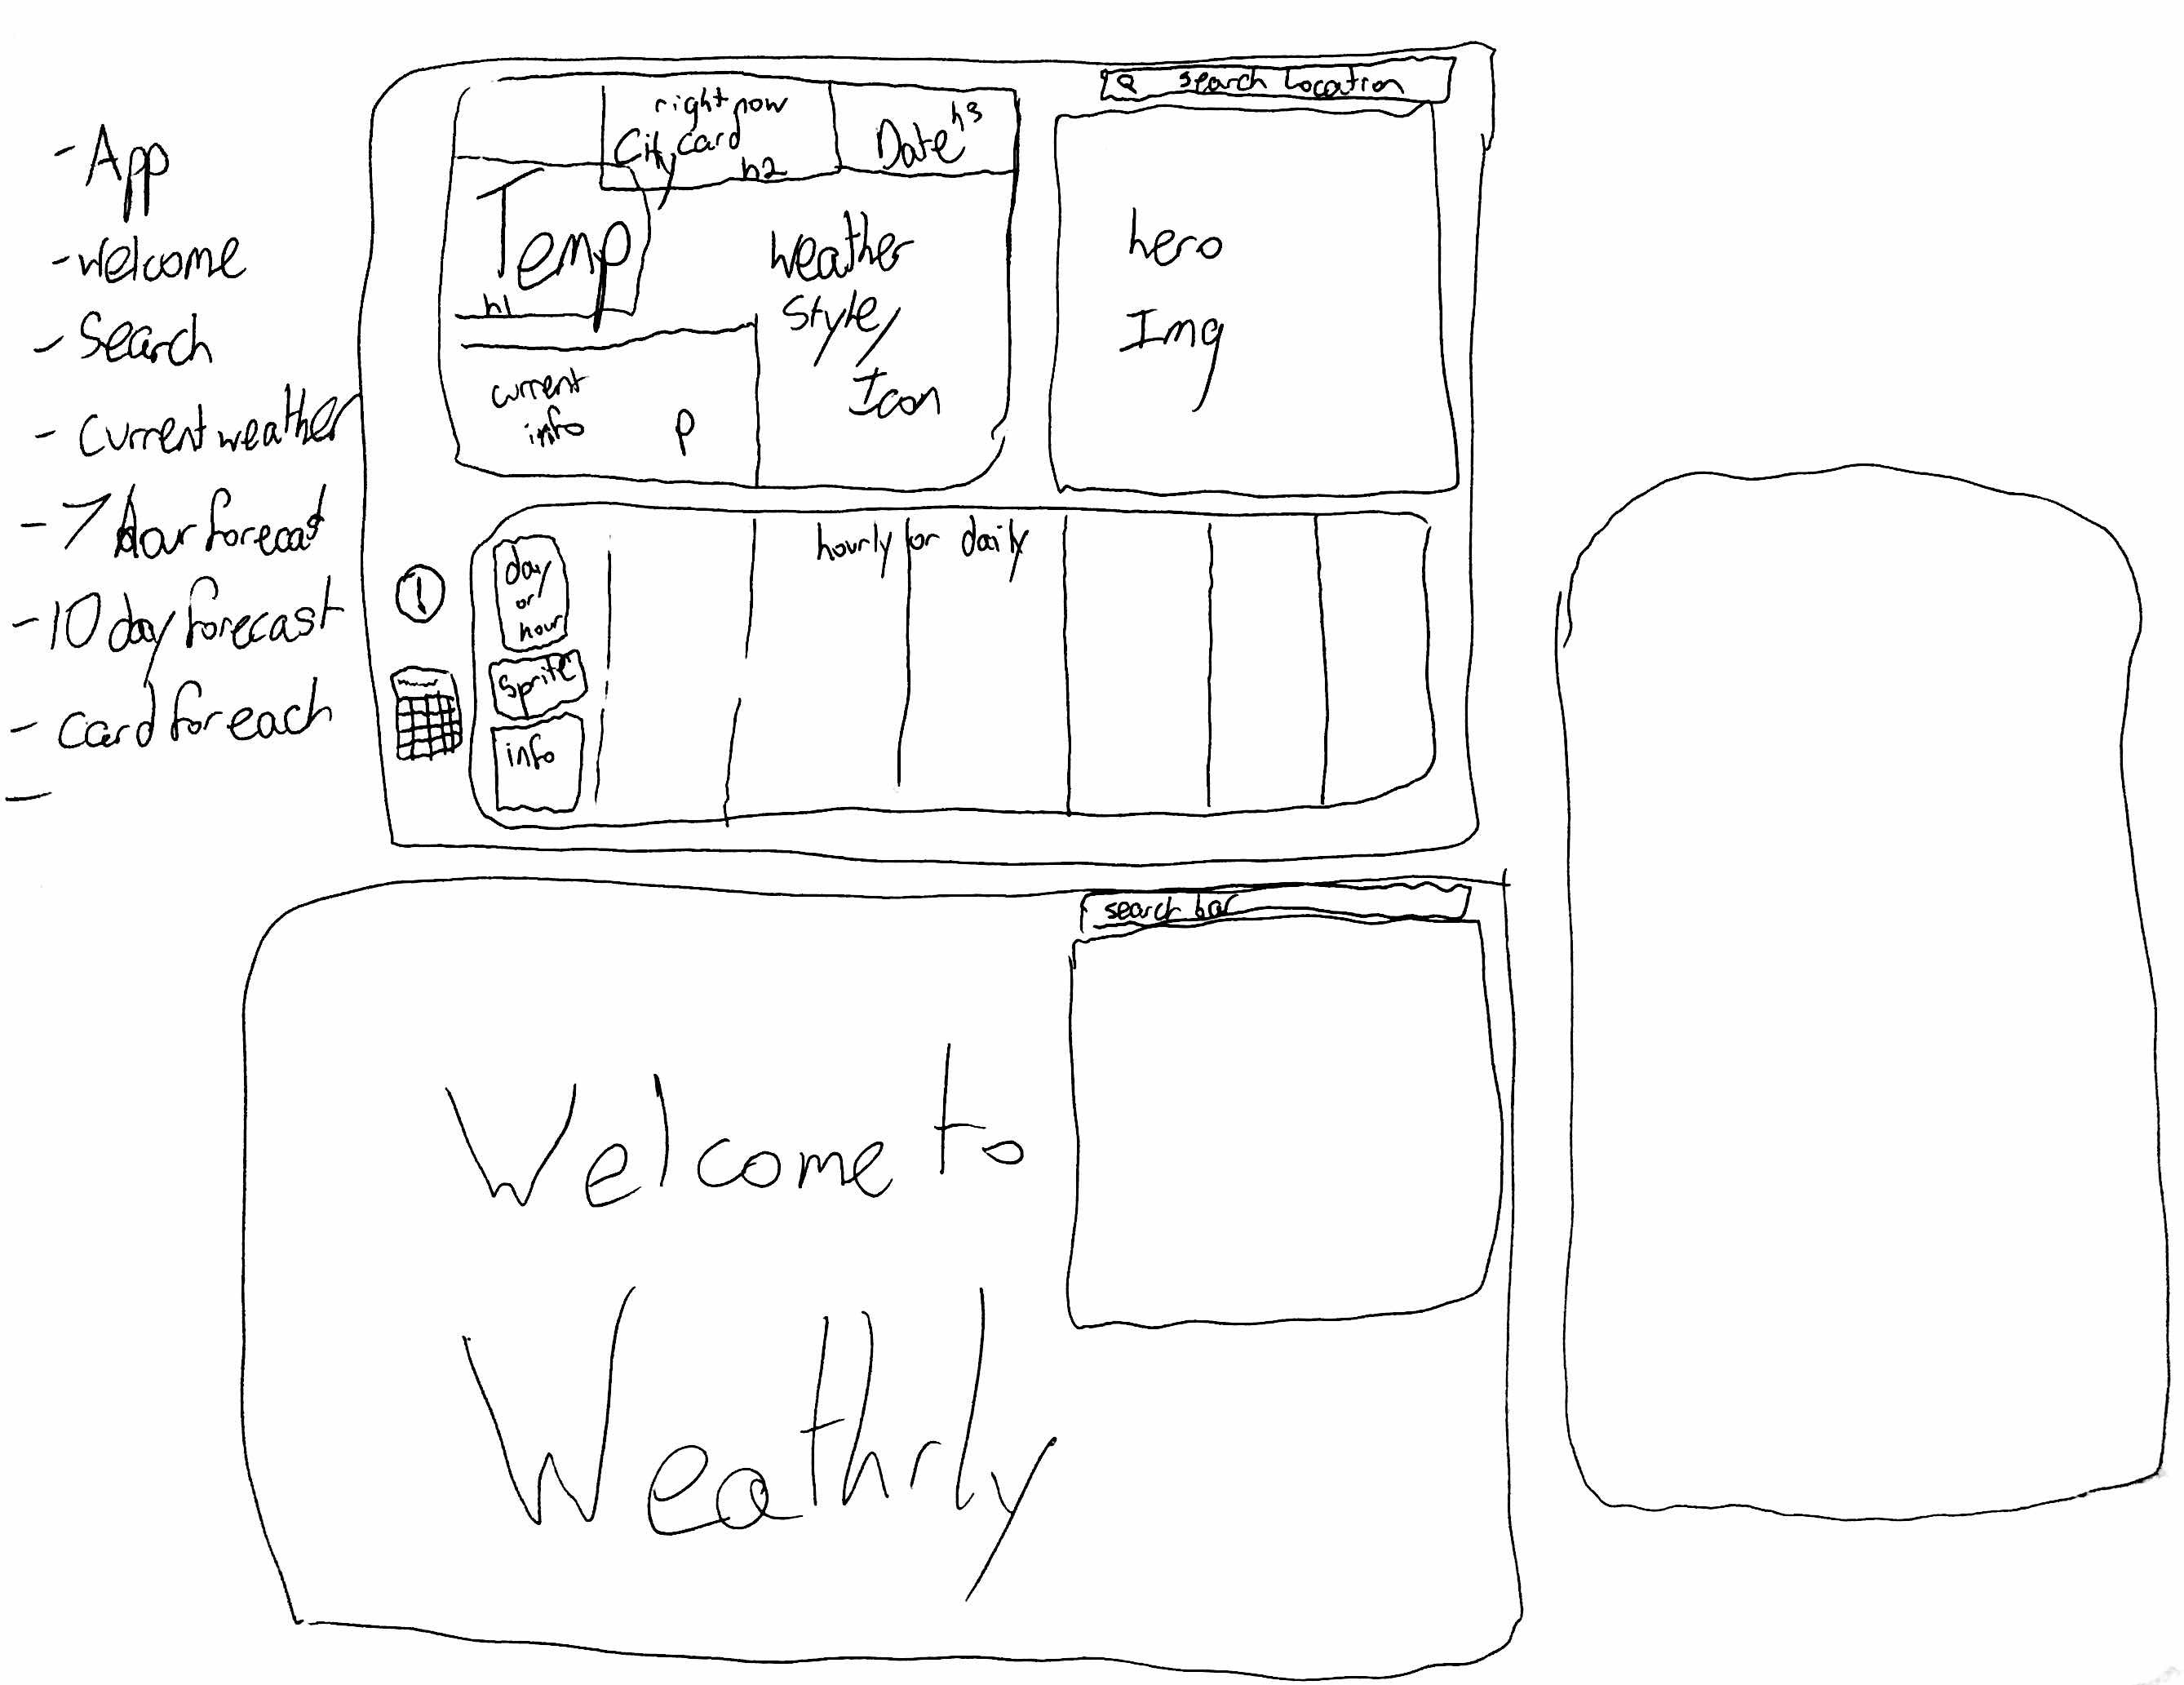 - App
- Welcome
- Search
- Current weather
- 7 Hour forecast
- 10 day forecast
- Card for each
-
search Location
right now
City card
h2
Date h3
Temp
h1
Weather
Style
Icon
current
info
p
hero
Img
hourly or daily
day
or
hour
Sprite
info
search bar
Welcome to
Weathrly